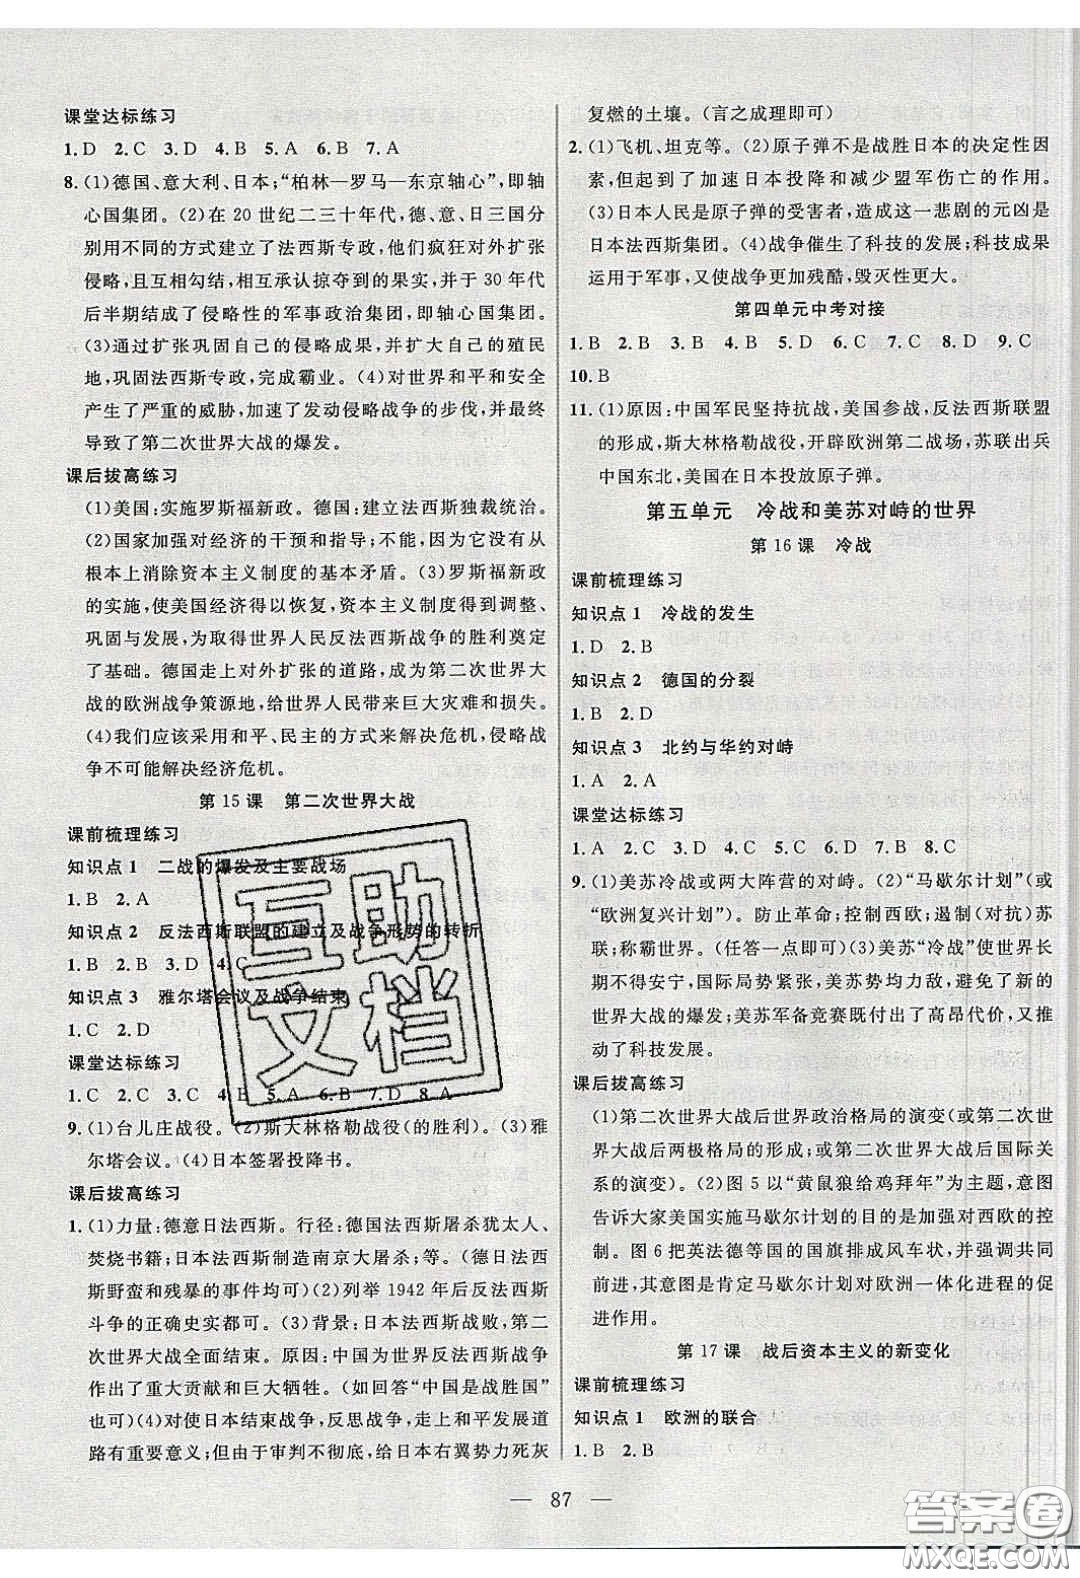 课堂达标练习
1. D 2. C 3. D 4. B 5. A 6. B 7. A
8. (1)德国、意大利、日本;“柏林—罗马—东京轴心”,即轴
心国集团。(2)在 20 世纪二三十年代,德、意、日三国分
别用不同的方式建立了法西斯专政,他们疯狂对外扩张
侵略,且三国相互勾结,相互承认掠夺到的果实,并于 30 年代
后半期结成了侵略性的军事政治集团,即轴心国集团。
(3)通过扩张巩固自己的侵略成果,并扩大自己的殖民
地,巩固法西斯专政,进而实现霸业。(4)对世界和平和安全
产生了严重的威胁,加速了发动侵略战争的步伐,并最终
导致了第二次世界大战的爆发。
课后拔高练习
(1)美国:实施罗斯福新政。德国:建立法西斯独裁统治。
(2)国家加强对经济的干预和指导;不能,因为没有从
根本上消除资本主义制度的基本矛盾。(3)罗斯福新政
的实施,使美国经济得以恢复,资本主义制度得到调整、
巩固与发展,为取得世界人民反法西斯战争的胜利奠定
了基础。德国走上对外扩张的道路,成为第二次世界大
战的欧洲战争策源地,给世界人民带来巨大灾难和损失。
(4)我们应该采用和平、民主的方式来解决危机,侵略战
争不可能解决经济危机。
第 15 课 第二次世界大战
课前梳理练习
知识点 1 二战的爆发及主要战场
1. B 2. A
知识点 2 反法西斯联盟的建立及战争形势的转折
1. B 2. B 3. D 4. C
知识点 3 雅尔塔会议及战争结束
1. C 2. D
课堂达标练习
1. C 2. C 3. C 4. B 5. A 6. B 7. D 8. A
9. (1)台儿庄战役。(2)斯大林格勒战役(的胜利)。(3)雅
尔塔会议。(4)日本签署投降书。
课后拔高练习
1. (1)力量:德意日法西斯。行径:德国法西斯屠杀犹太人、
焚烧书籍;日本法西斯制造南京大屠杀;等。(德日法西
斯野蛮和残暴的事件均可)(2)列举 1942 年后反法西斯
斗争的正确史实都可。(3)背景:日本法西斯战败,第二
次世界大战全面结束。原因:中国为世界反法西斯战争
作出了重大贡献和巨大牺牲。(如回答“中国是战胜国”
也可)(4)对使日本结束战争,反思战争,走上和平发展道
路有重要意义;但由于审判不彻底,给日本右翼势力死灰
复燃的土壤。(言之成理即可)
2. (1)飞机、坦克等。(2)原子弹不是战胜日本的决定性因
素,但起到了加速日本投降和减少盟军伤亡的作用。
(3)日本人民是原子弹的受害者,造成这一悲剧的元凶是
日本法西斯集团。(4)战争催生了科技的发展;科技成果
运用于军事,又使战争更加残酷,毁灭性更大。
第四单元中考对接
1. B 2. B 3. B 4. B 5. D 6. C 7. C 8. D 9. C
10. B
11. (1)原因:中国军民坚持抗战,美国参战,反法西斯联盟
的形成,斯大林格勒战役,开辟欧洲第二战场,苏联出兵
中国东北,美国在日本投放原子弹。
第五单元 冷战和美苏对峙的世界
第 16 课 冷战
课前梳理练习
知识点 1 冷战的发生
1. D 2. B
知识点 2 德国的分裂
1. B 2. D
知识点 3 北约与华约对峙
1. A 2. A
课堂达标练习
1. A 2. C 3. C 4. A 5. D 6. D 7. B 8. C
9. (1)美苏冷战或两大阵营的对峙。(2)“马歇尔计划”(或
“欧洲复兴计划”)。防止革命;控制西欧;遏制(对抗)苏
联;称霸世界。(任答一点即可)(3)美苏“冷战”使世界长
期不得安宁,国际局势紧张,美苏势均力敌,避免了新的
世界大战的爆发;美苏军备竞赛既付出了高昂代价,又推
动了科技发展。
课后拔高练习
(1)第二次世界大战后世界政治格局的演变(或第二次世
界大战后两极格局的形成;或第二次世界大战后国际关
系的演变)。(2)图 5 以“黄鼠狼给鸡拜年”为主题,意图
告诉大家美国实施马歇尔计划的目的是加强对西欧的控
制。图 6 把英法德等国的国旗排成风车状,并强调共同
前进,其意是肯定马歇尔计划对欧洲一体化进程的促
进作用。
第 17 课 战后资本主义的新变化
课前梳理练习
知识点 1 欧洲的联合
1. B 2. B
— 87 —
互助
文档
答案圈
MXQE.COM